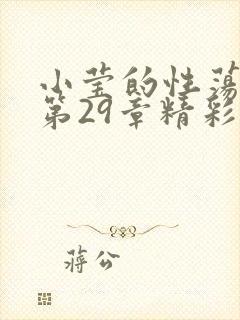 小莹的性荡
第29章精彩
蒋公